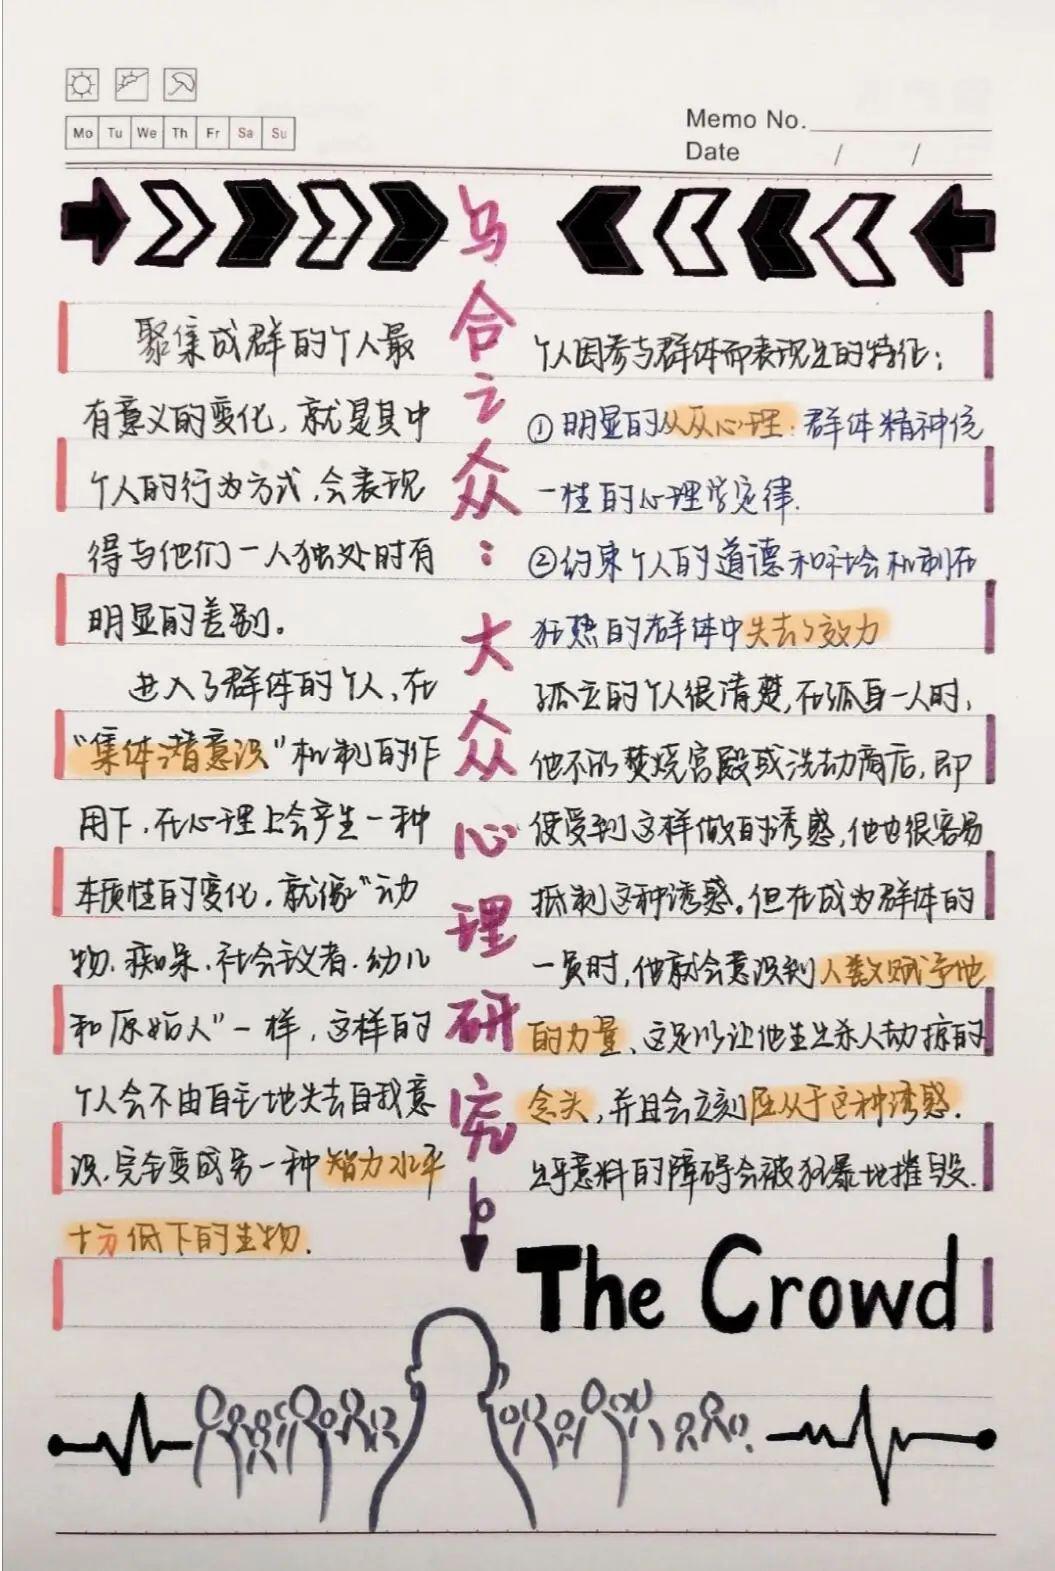 Mo Tu We Th Fr Sa Su
Memo No.
Date / /
乌合之众：大众心理研究
聚集成群的个人最
有意义的变化，就是其中
个人的行为方式，会表现
得与他们一人独处时有
明显的差别。
进入了群体的个人，在
“集体潜意识”机制的作
用下，在心理上会产生一种
本质性的变化，就像“动
物、痴呆、社会主义者、幼儿
和原始人”一样，这样的
个人会不由自主地失去自我意
识，完全变成另一种智力水平
十分低下的生物.
个人因参与群体而表现出的特征：
①明显的从众心理. 群体精神统
一性的心理学定律.
②约束个人的道德和社会机制在
狂热的群体中失去了效力
孤立的个人很清楚，在孤身一人时，
他不能焚烧宫殿或洗劫商店，即
使受到这样做的诱惑，他也很容易
抵制这种诱惑。但在成为群体的
一员时，他就会意识到人数赋予他
的力量、这足以让他生出杀人劫掠的
念头，并且会立刻屈从于这种诱惑.
出乎意料的障碍会被狂暴地摧毁.
The Crowd